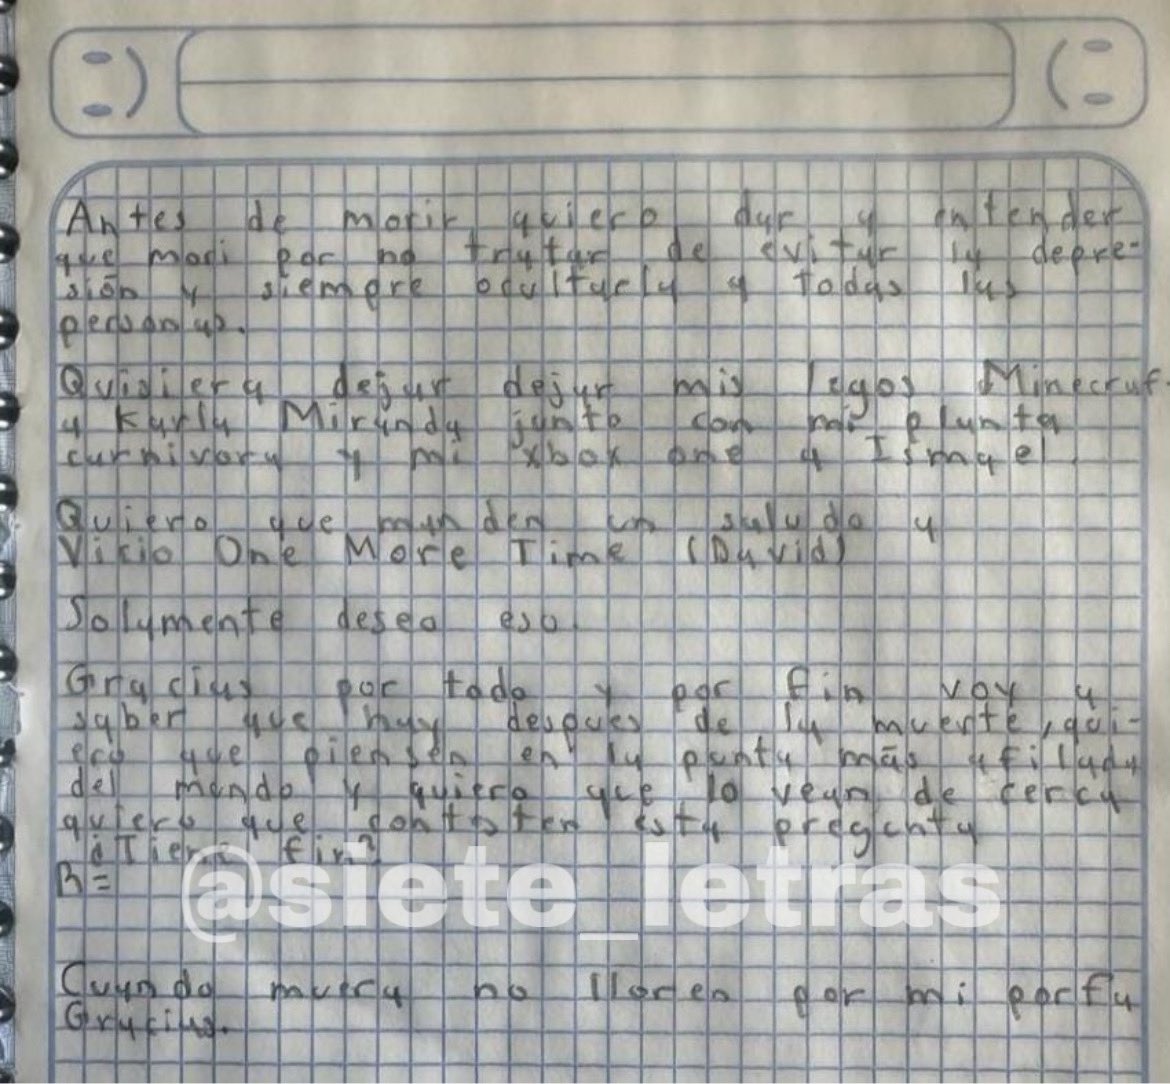 Antes de morir quiero dar a entender
que mori por no tratar de evitar la depre-
sión y siempre ocultarla a todas las
personas.
Quisiera dejar dejar mis legos Minecraf-
a Karla Miranda junto con mi planta
carnivora y mi xbox one a Ismael.
Quiero que manden un saludo a
Vicio One More Time (David)
Solamente deseo eso.
Gracias por todo y por fin voy a
saber que hay despues de la muerte, qui-
ero que piensen en la punta más afilada
del mundo y quiero que lo vean de cerca
quiero que contesten esta pregunta
¿Tiene fin?
R=
@siete_letras
Cuando muera no lloren por mi porfa
Gracias.